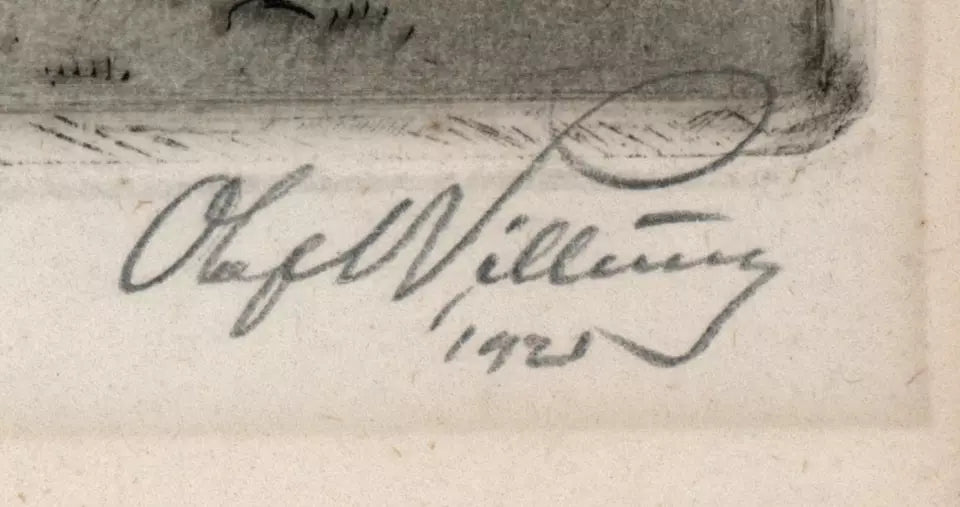 Olaf Willums
1921